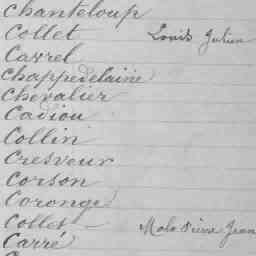 Chanteloup
Collet Louis Julien
Carrel
Chappedelaine
Chevalier
Cadiou
Collin
Cresveur
Corson
Coronge
Collet Malo Pierre Jean
Carré